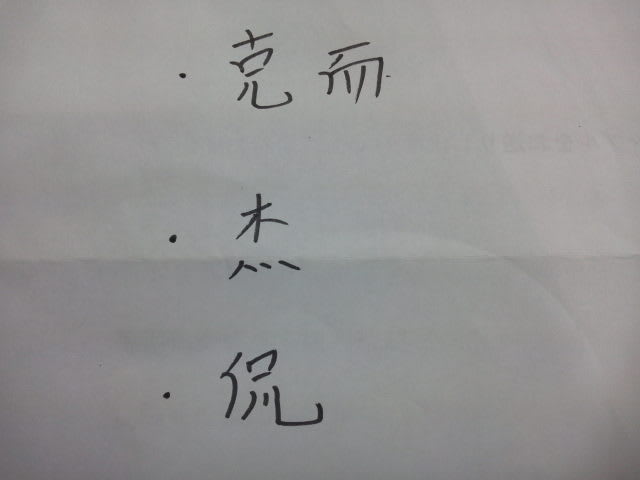 ・克而
・杰
・侃